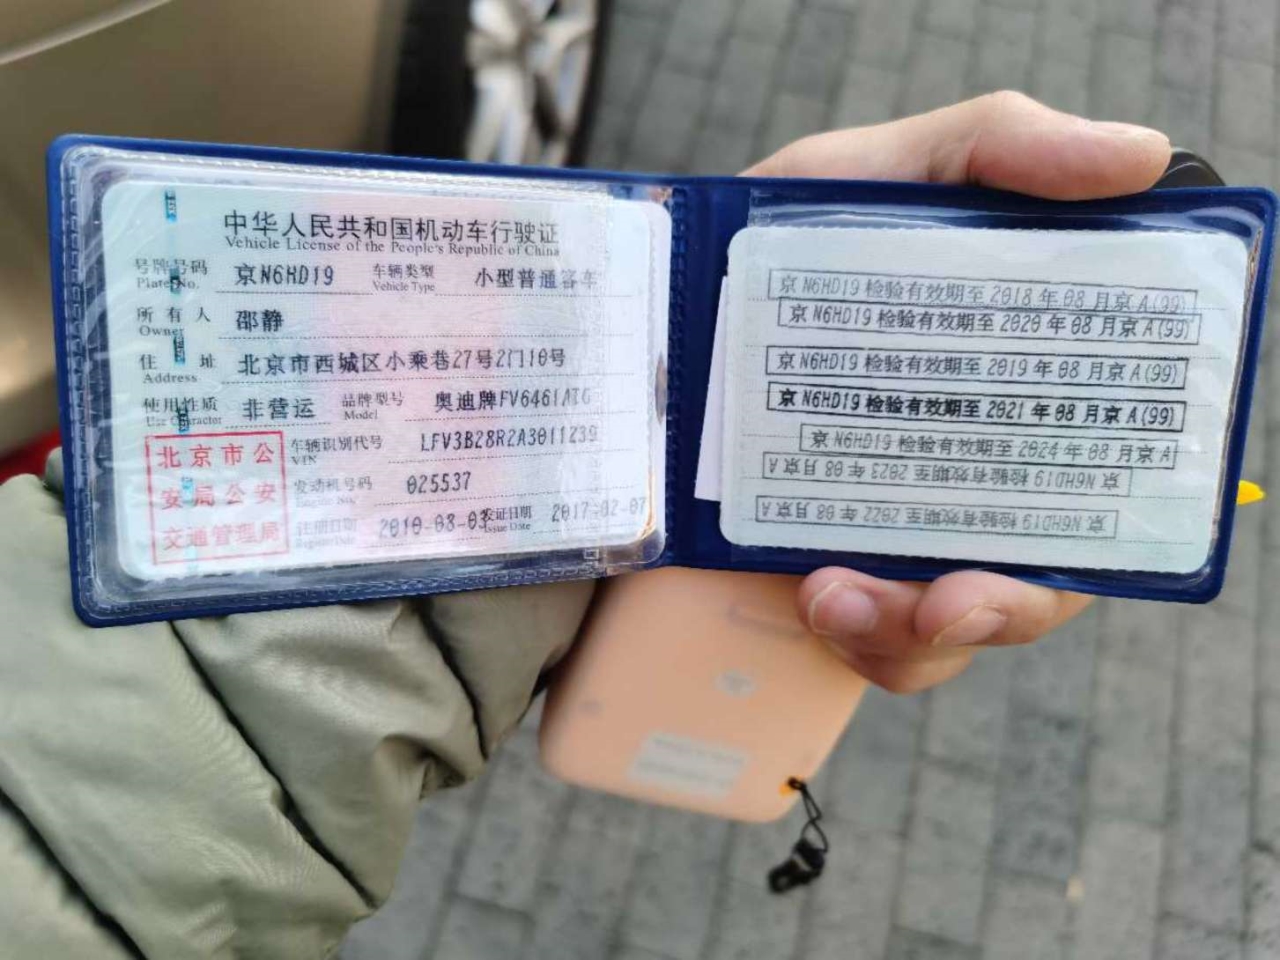 中华人民共和国机动车行驶证
Vehicle License of the People's Republic of China
号牌号码 京N6HD19 车辆类型 小型普通客车
Plate No. Vehicle Type
所有人 邵静
Owner
住址 北京市西城区小乘巷27号2门10号
Address
使用性质 非营运 品牌型号 奥迪牌FV6461ATG
Use Character Model
北京市公
安局公安
交通管理局
车辆识别代号 LFV3B28R2A3011239
VIN
发动机号码 025537
Engine No.
注册日期 2010-08-03 发证日期 2017-02-07
Register Date Issue Date
京N6HD19 检验有效期至 2018 年 08 月京 A(99)
京N6HD19 检验有效期至 2020 年 08 月京 A(99)
京N6HD19 检验有效期至 2019 年 08 月京 A(99)
京N6HD19 检验有效期至 2021 年 08 月京 A(99)
京N6HD19 检验有效期至 2024 年 08 月京 A
京N6HD19 检验有效期至 2023 年 08 月京 A
京N6HD19 检验有效期至 2022 年 08 月京 A